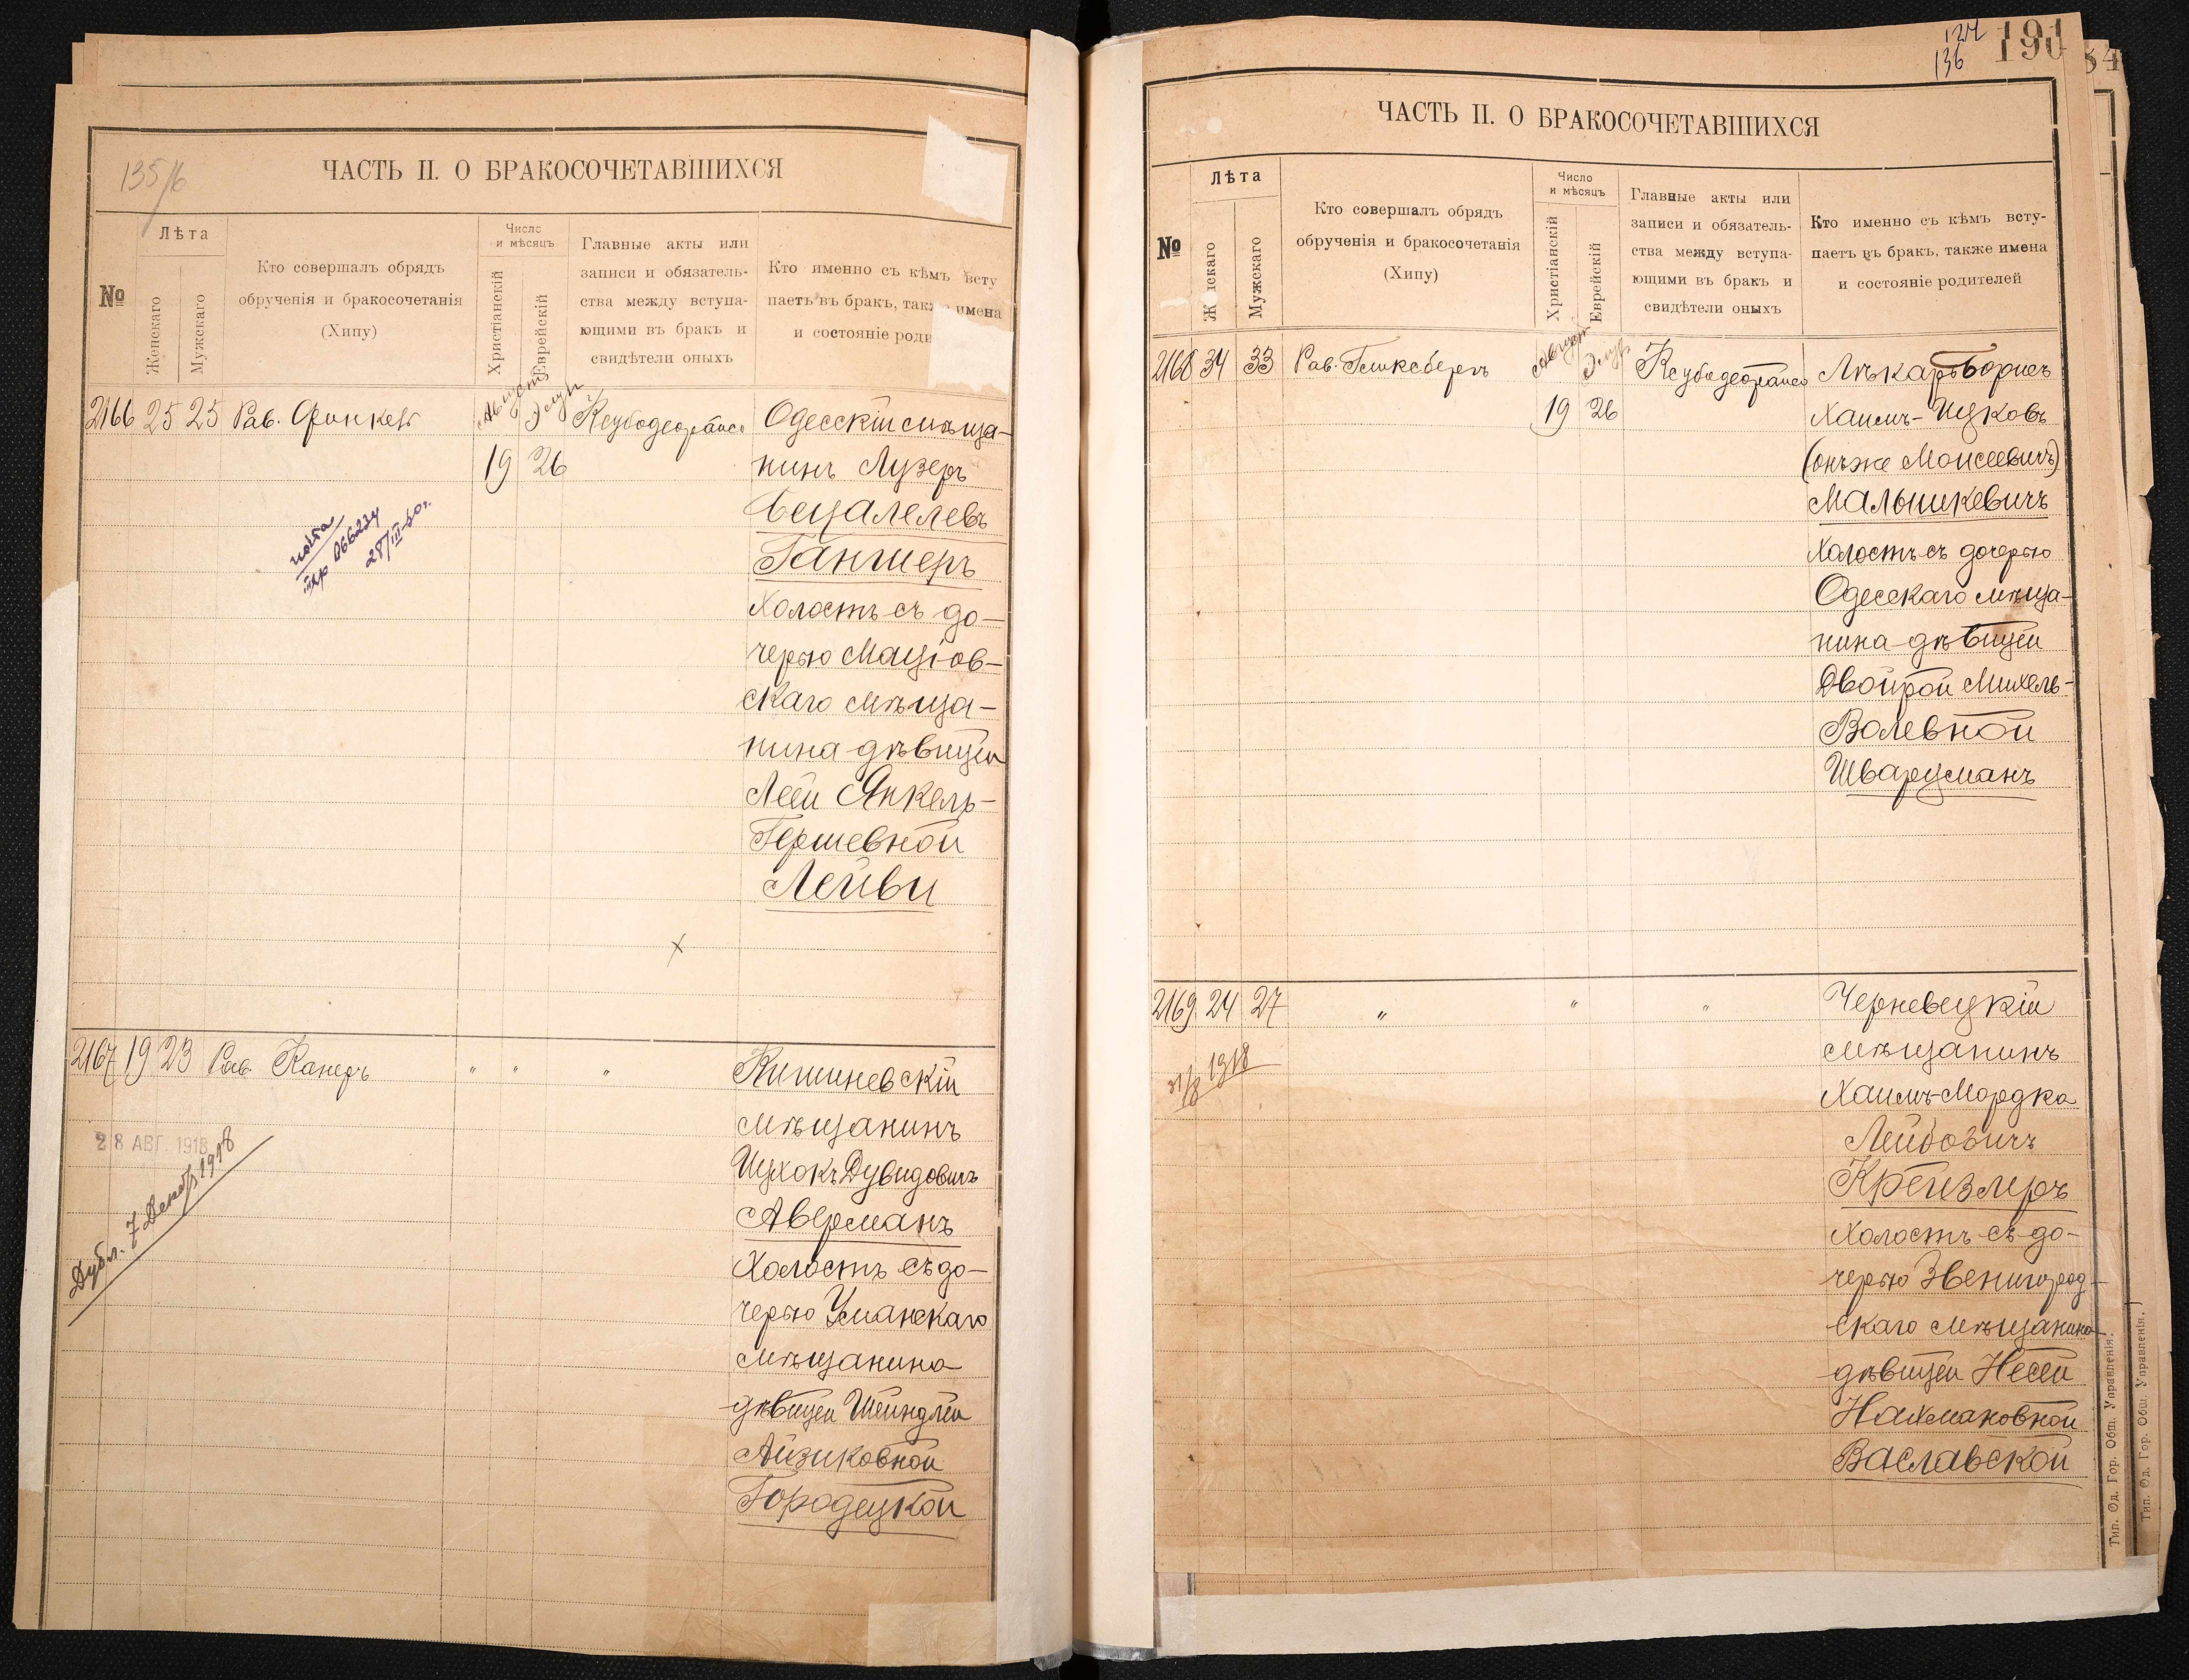 135/6
ЧАСТЬ II. О БРАКОСОЧЕТАВШИХСЯ
№
Лѣта
Женскаго
Мужскаго
Кто совершалъ обрядъ
обрученія и бракосочетанія
(Хипу)
Число
и мѣсяцъ
Христіанскій
Еврейскій
Главные акты или
записи и обязатель-
ства между вступа-
ющими въ бракъ и
свидѣтели оныхъ
Кто именно съ кѣмъ всту
паетъ въ бракъ, также имена
и состояніе роди
2166 25 25 Рав. Финкель
Августъ Элулъ
19 26
Одесскій мѣща-
нинъ Лузеръ
Бецалелевъ
Гангнеръ
холостъ съ до-
черью Маціов-
скаго мѣща-
нина дѣвицей
Леей Янкель-
Гершевной
Лейви
28/III-30г.
x
2167 19 23 Рав. Канеръ " " "
Кишиневскій
мѣщанинъ
Ицхокъ Дувидовичъ
Аверманъ
холостъ съ до-
черью Уманскаго
мѣщанина
дѣвицей Шейндлей
Айзиковной
Городецкой
28 АВГ. 1918
Дубл. 7 Декабр. 1918
124
136
191
34
ЧАСТЬ II. О БРАКОСОЧЕТАВШИХСЯ
№
Лѣта
Женскаго
Мужскаго
Кто совершалъ обрядъ
обрученія и бракосочетанія
(Хипу)
Число
и мѣсяцъ
Христіанскій
Еврейскій
Главные акты или
записи и обязатель-
ства между вступа-
ющими въ бракъ и
свидѣтели оныхъ
Кто именно съ кѣмъ всту-
паетъ въ бракъ, также имена
и состояніе родителей
2168 34 33 Рав. Гликсбергъ
Августъ Элулъ
19 26
Лѣкарь Борисъ
Хаимъ-Ицковъ
(онъ же Моисеевичъ)
Малышкевичъ
холостъ съ дочерью
Одесскаго мѣща-
нина дѣвицей
Двойрой Михель-
Волевной
Шварцманъ
2169 24 27 " " "
31/8 1918
Черневецкій
мѣщанинъ
Хаимъ-Мордка
Лейбовичъ
Крейзлеръ
холостъ съ до-
черью Звенигород-
скаго мѣщанина
дѣвицей Несей
Нахмановной
Заславской
Тип. Од. Гор. Общ. Управленія.
Тип. Од. Гор. Общ. Управленія.